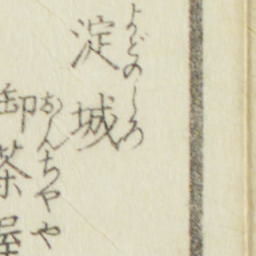 淀城
よどのしろ
御茶屋
おんちやや